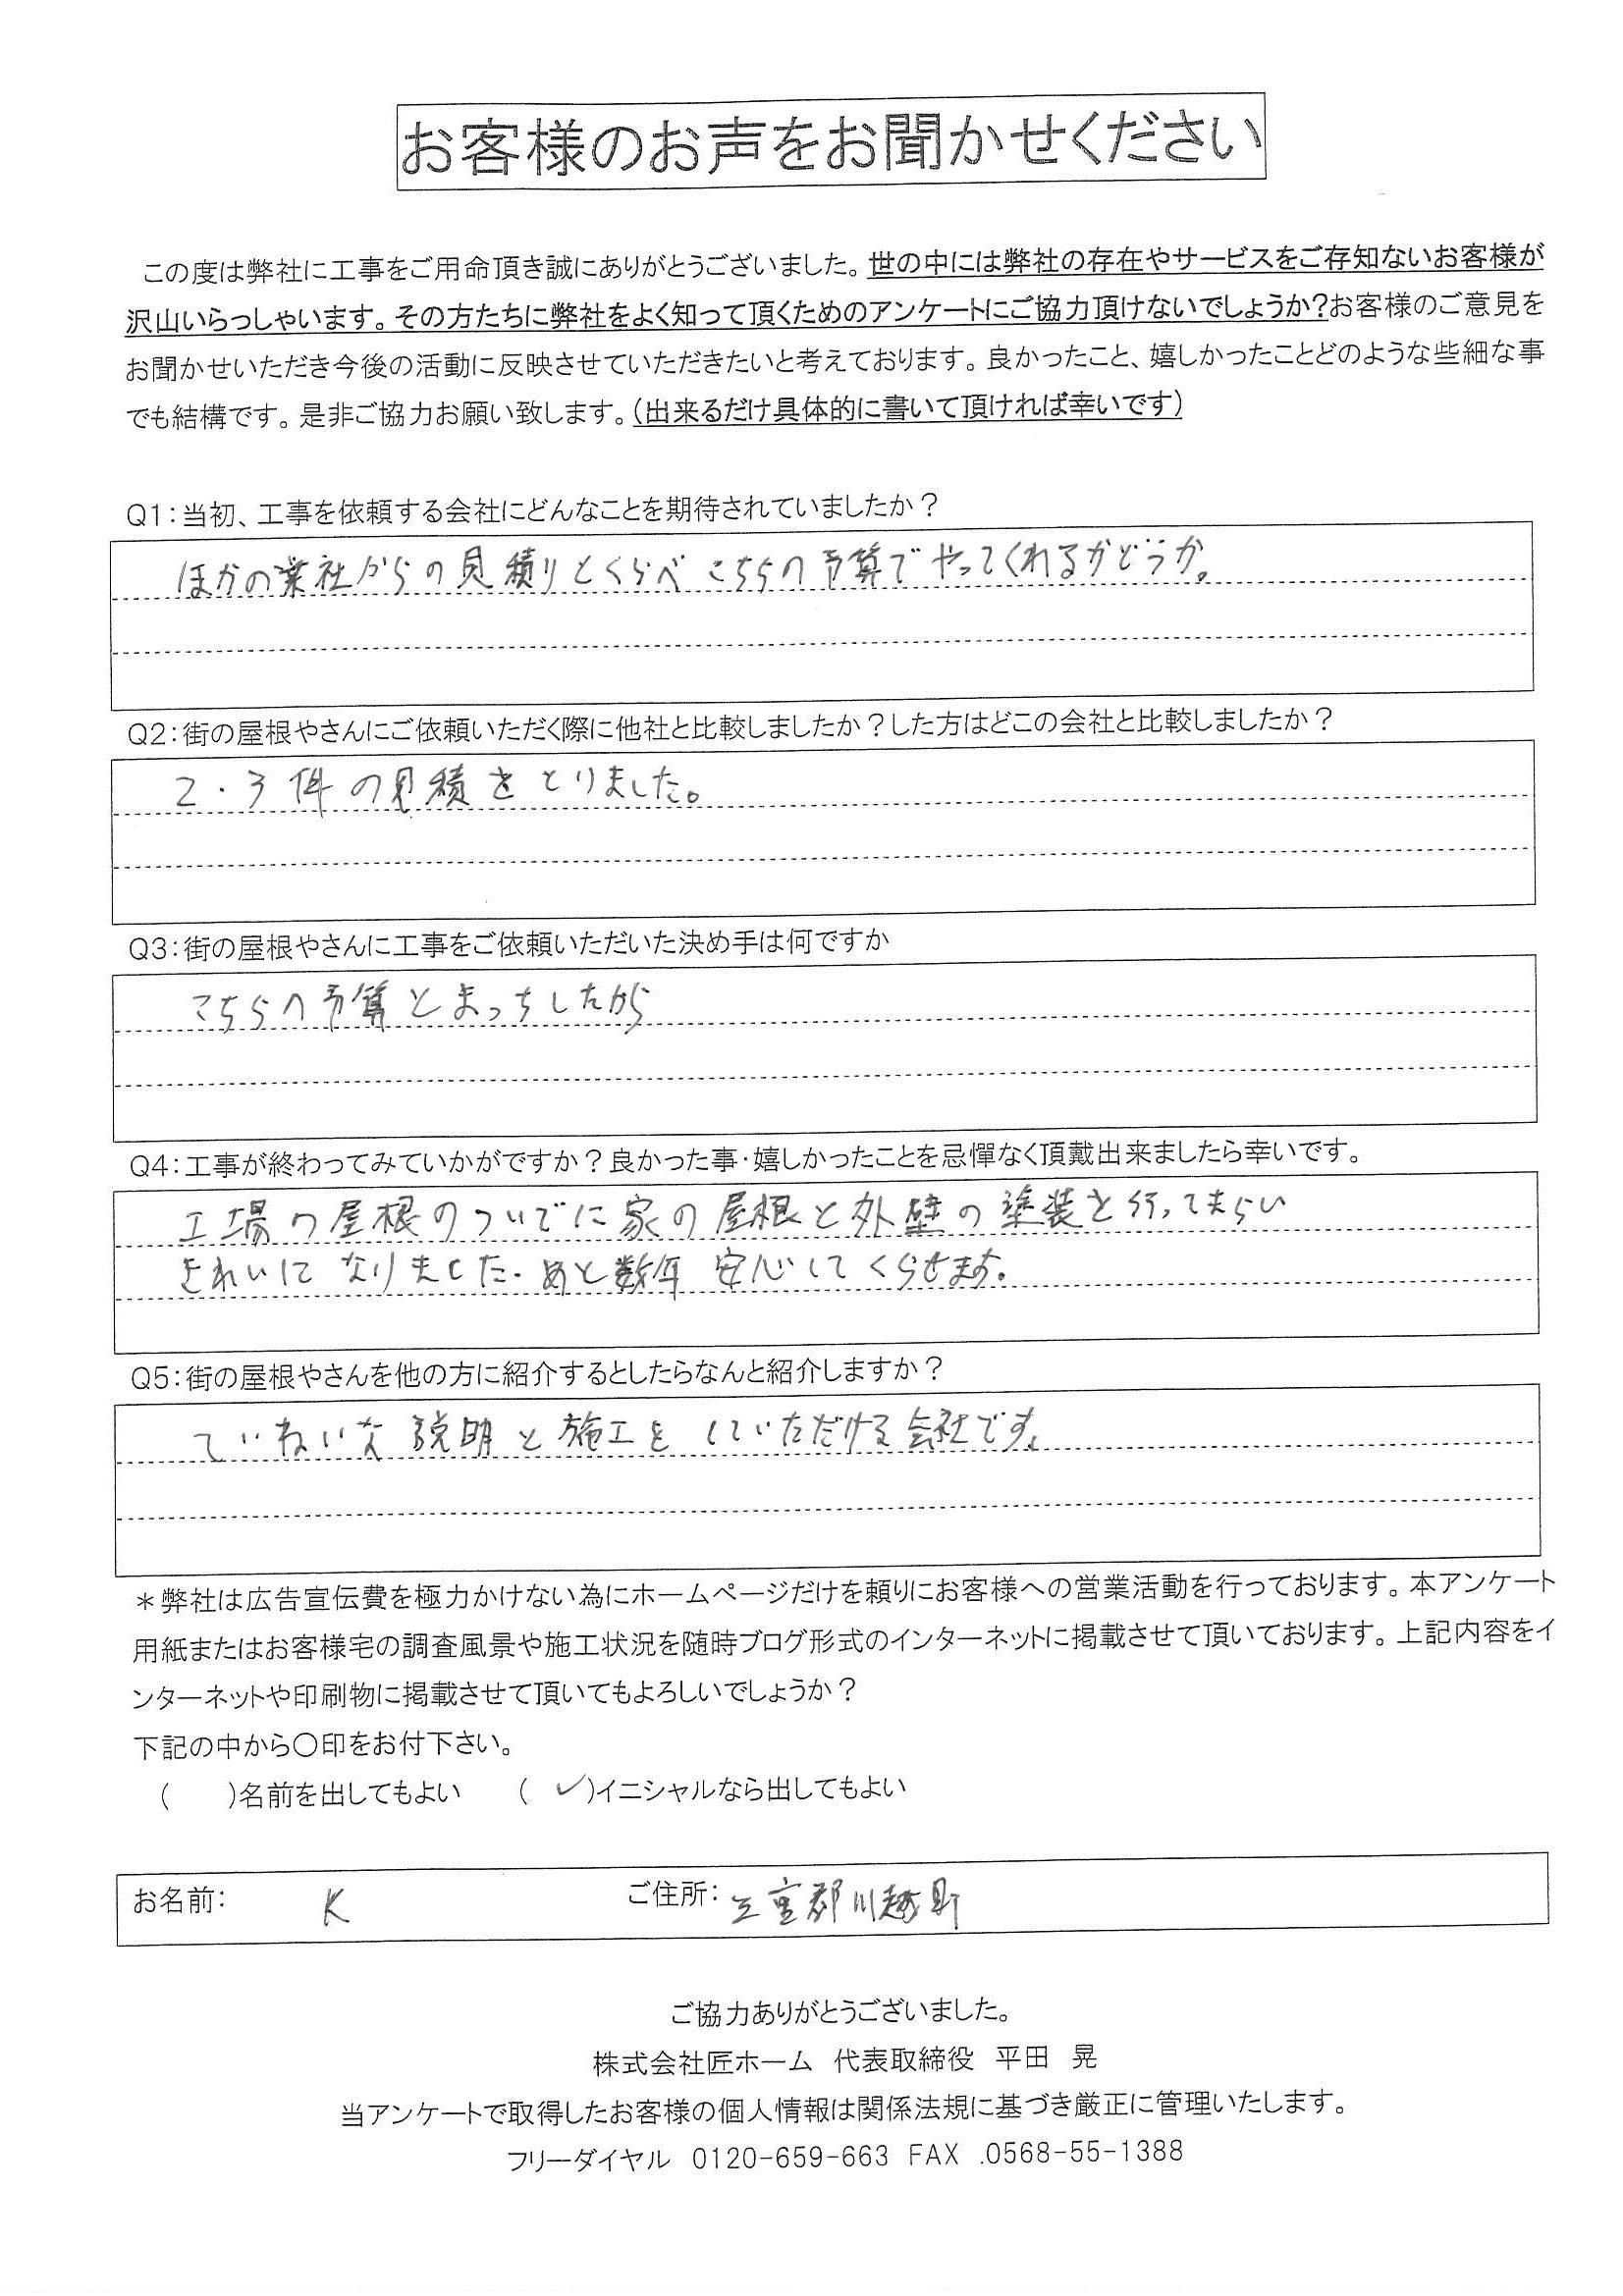 お客様のお声をお聞かせください
この度は弊社に工事をご用命頂き誠にありがとうございました。世の中には弊社の存在やサービスをご存知ないお客様が
沢山いらっしゃいます。その方たちに弊社をよく知って頂くためのアンケートにご協力頂けないでしょうか?お客様のご意見を
お聞かせいただき今後の活動に反映させていただきたいと考えております。良かったこと、嬉しかったことどのような些細な事
でも結構です。是非ご協力お願い致します。(出来るだけ具体的に書いて頂ければ幸いです)
Q1:当初、工事を依頼する会社にどんなことを期待されていましたか?
ほかの業社からの見積りとくらべこちらの予算でやってくれるかどうか。
Q2:街の屋根やさんにご依頼いただく際に他社と比較しましたか?した方はどこの会社と比較しましたか?
2・3件の見積をとりました。
Q3:街の屋根やさんに工事をご依頼いただいた決め手は何ですか
こちらの予算とまっちしたから
Q4:工事が終わってみていかがですか?良かった事・嬉しかったことを忌憚なく頂戴出来ましたら幸いです。
工場の屋根のついでに家の屋根と外壁の塗装を行ってもらい
きれいになりました.あと数年安心してくらせます。
Q5:街の屋根やさんを他の方に紹介するとしたらなんと紹介しますか?
ていねいな説明と施工をしていただける会社です。
*弊社は広告宣伝費を極力かけない為にホームページだけを頼りにお客様への営業活動を行っております。本アンケート
用紙またはお客様宅の調査風景や施工状況を随時ブログ形式のインターネットに掲載させて頂いております。上記内容をイ
ンターネットや印刷物に掲載させて頂いてもよろしいでしょうか?
下記の中から〇印をお付下さい。
( )名前を出してもよい ( ✓)イニシャルなら出してもよい
お名前: K ご住所: 三重郡川越町
ご協力ありがとうございました。
株式会社匠ホーム 代表取締役 平田 晃
当アンケートで取得したお客様の個人情報は関係法規に基づき厳正に管理いたします。
フリーダイヤル 0120-659-663 FAX .0568-55-1388